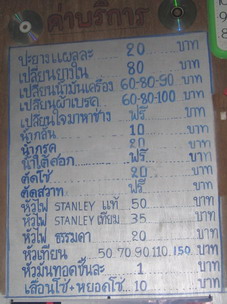 ค่าบริการ
ปะยางแผลละ 20 บาท
เปลี่ยนยางใน 80 บาท
เปลี่ยนน้ำมันเครื่อง 60-80-90 บาท
เปลี่ยนผ้าเบรค 60-80-100 บาท
เปลี่ยนใจมาหาช่าง ฟรี
น้ำกลั่น 10 บาท
น้ำกรด 20 บาท
ฟรี บาท
ตัดโซ่ 20 บาท
ตัดสวาท ฟรี บาท
หัวไฟ STANLEY แท้ 50 บาท
หัวไฟ STANLEY เทียม 35 บาท
หัวไฟ ธรรมดา 20 บาท
หัวเทียน 50.70.90.110.150 บาท
หัวมันทอดชิ้นละ 1 บาท
เลื่อนโซ่+หยอดโซ่ 10 บาท